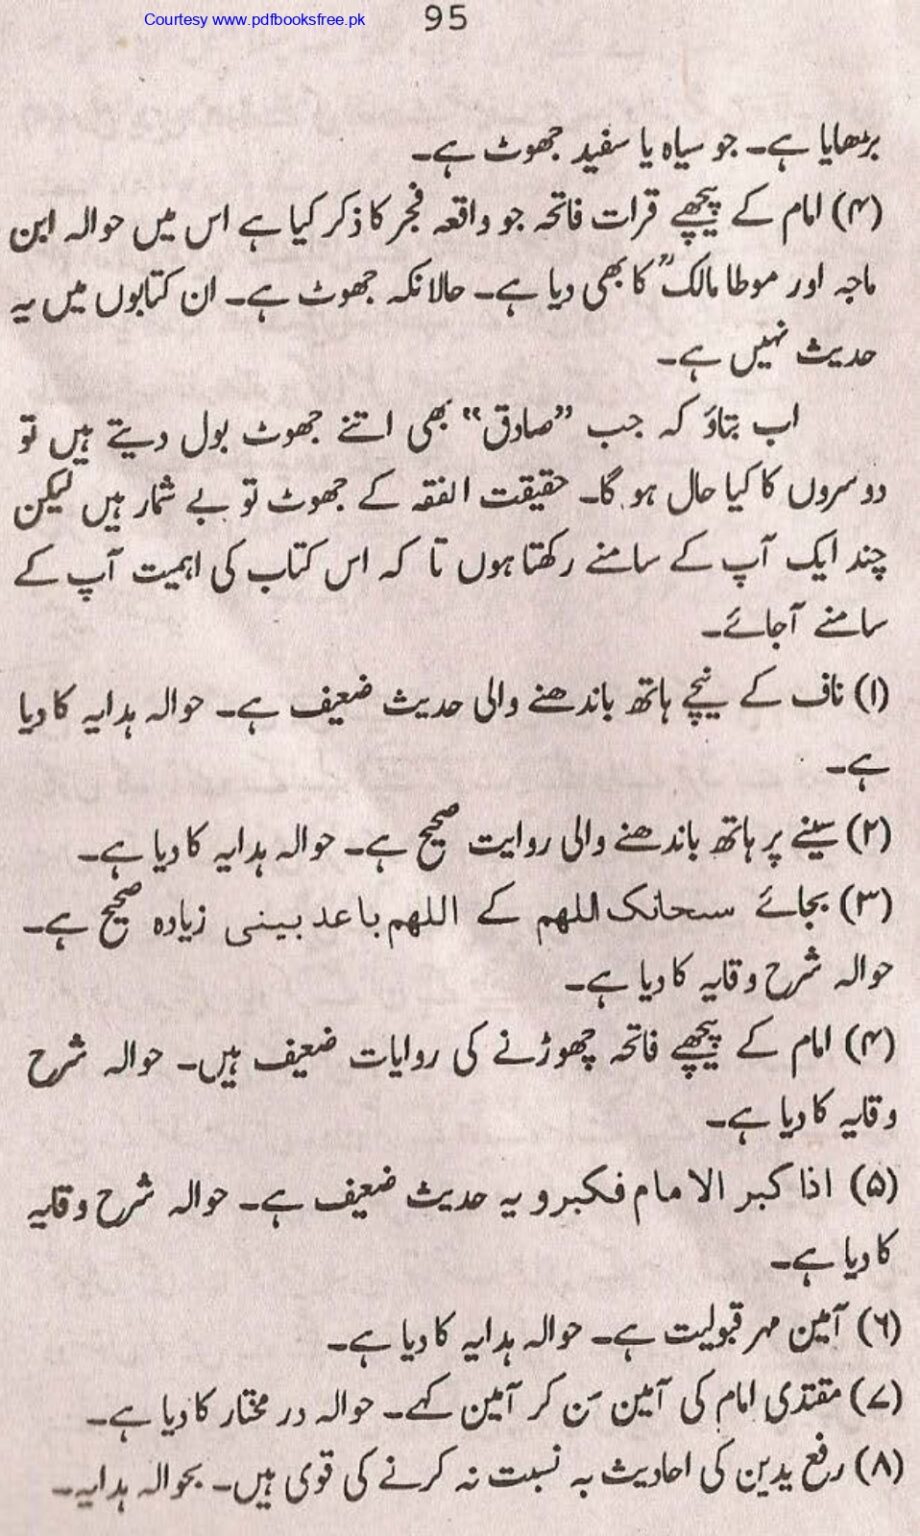 Courtesy www.pdfbooksfree.pk
95
بڑھایا ہے۔ جو سیاہ یا سفید جھوٹ ہے۔
(۴) امام کے پیچھے قرات فاتحہ جو واقعہ فجر کا ذکر کیا ہے اس میں حوالہ ابن
ماجہ اور موطا مالکؒ کا بھی دیا ہے۔ حالانکہ جھوٹ ہے۔ ان کتابوں میں یہ
حدیث نہیں ہے۔
اب بتاؤ کہ جب ”صادق“ بھی اتنے جھوٹ بول دیتے ہیں تو
دوسروں کا کیا حال ہو گا۔ حقیقت الفقہ کے جھوٹ تو بے شمار ہیں لیکن
چند ایک آپ کے سامنے رکھتا ہوں تا کہ اس کتاب کی اہمیت آپ کے
سامنے آجائے۔
(۱) ناف کے نیچے ہاتھ باندھنے والی حدیث ضعیف ہے۔ حوالہ ہدایہ کا دیا
ہے۔
(۲) سینے پر ہاتھ باندھنے والی روایت صحیح ہے۔ حوالہ ہدایہ کا دیا ہے۔
(۳) بجائے سبحانک اللهم کے اللهم باعد بینی زیادہ صحیح ہے۔
حوالہ شرح وقایہ کا دیا ہے۔
(۴) امام کے پیچھے فاتحہ چھوڑنے کی روایات ضعیف ہیں۔ حوالہ شرح
وقایہ کا دیا ہے۔
(۵) اذا کبر الامام فکبرو یہ حدیث ضعیف ہے۔ حوالہ شرح وقایہ
کا دیا ہے۔
(۶) آمین مہر قبولیت ہے۔ حوالہ ہدایہ کا دیا ہے۔
(۷) مقتدی امام کی آمین سن کر آمین کہے۔ حوالہ در مختار کا دیا ہے۔
(۸) رفع یدین کی احادیث بہ نسبت نہ کرنے کی قوی ہیں۔ بحوالہ ہدایہ۔